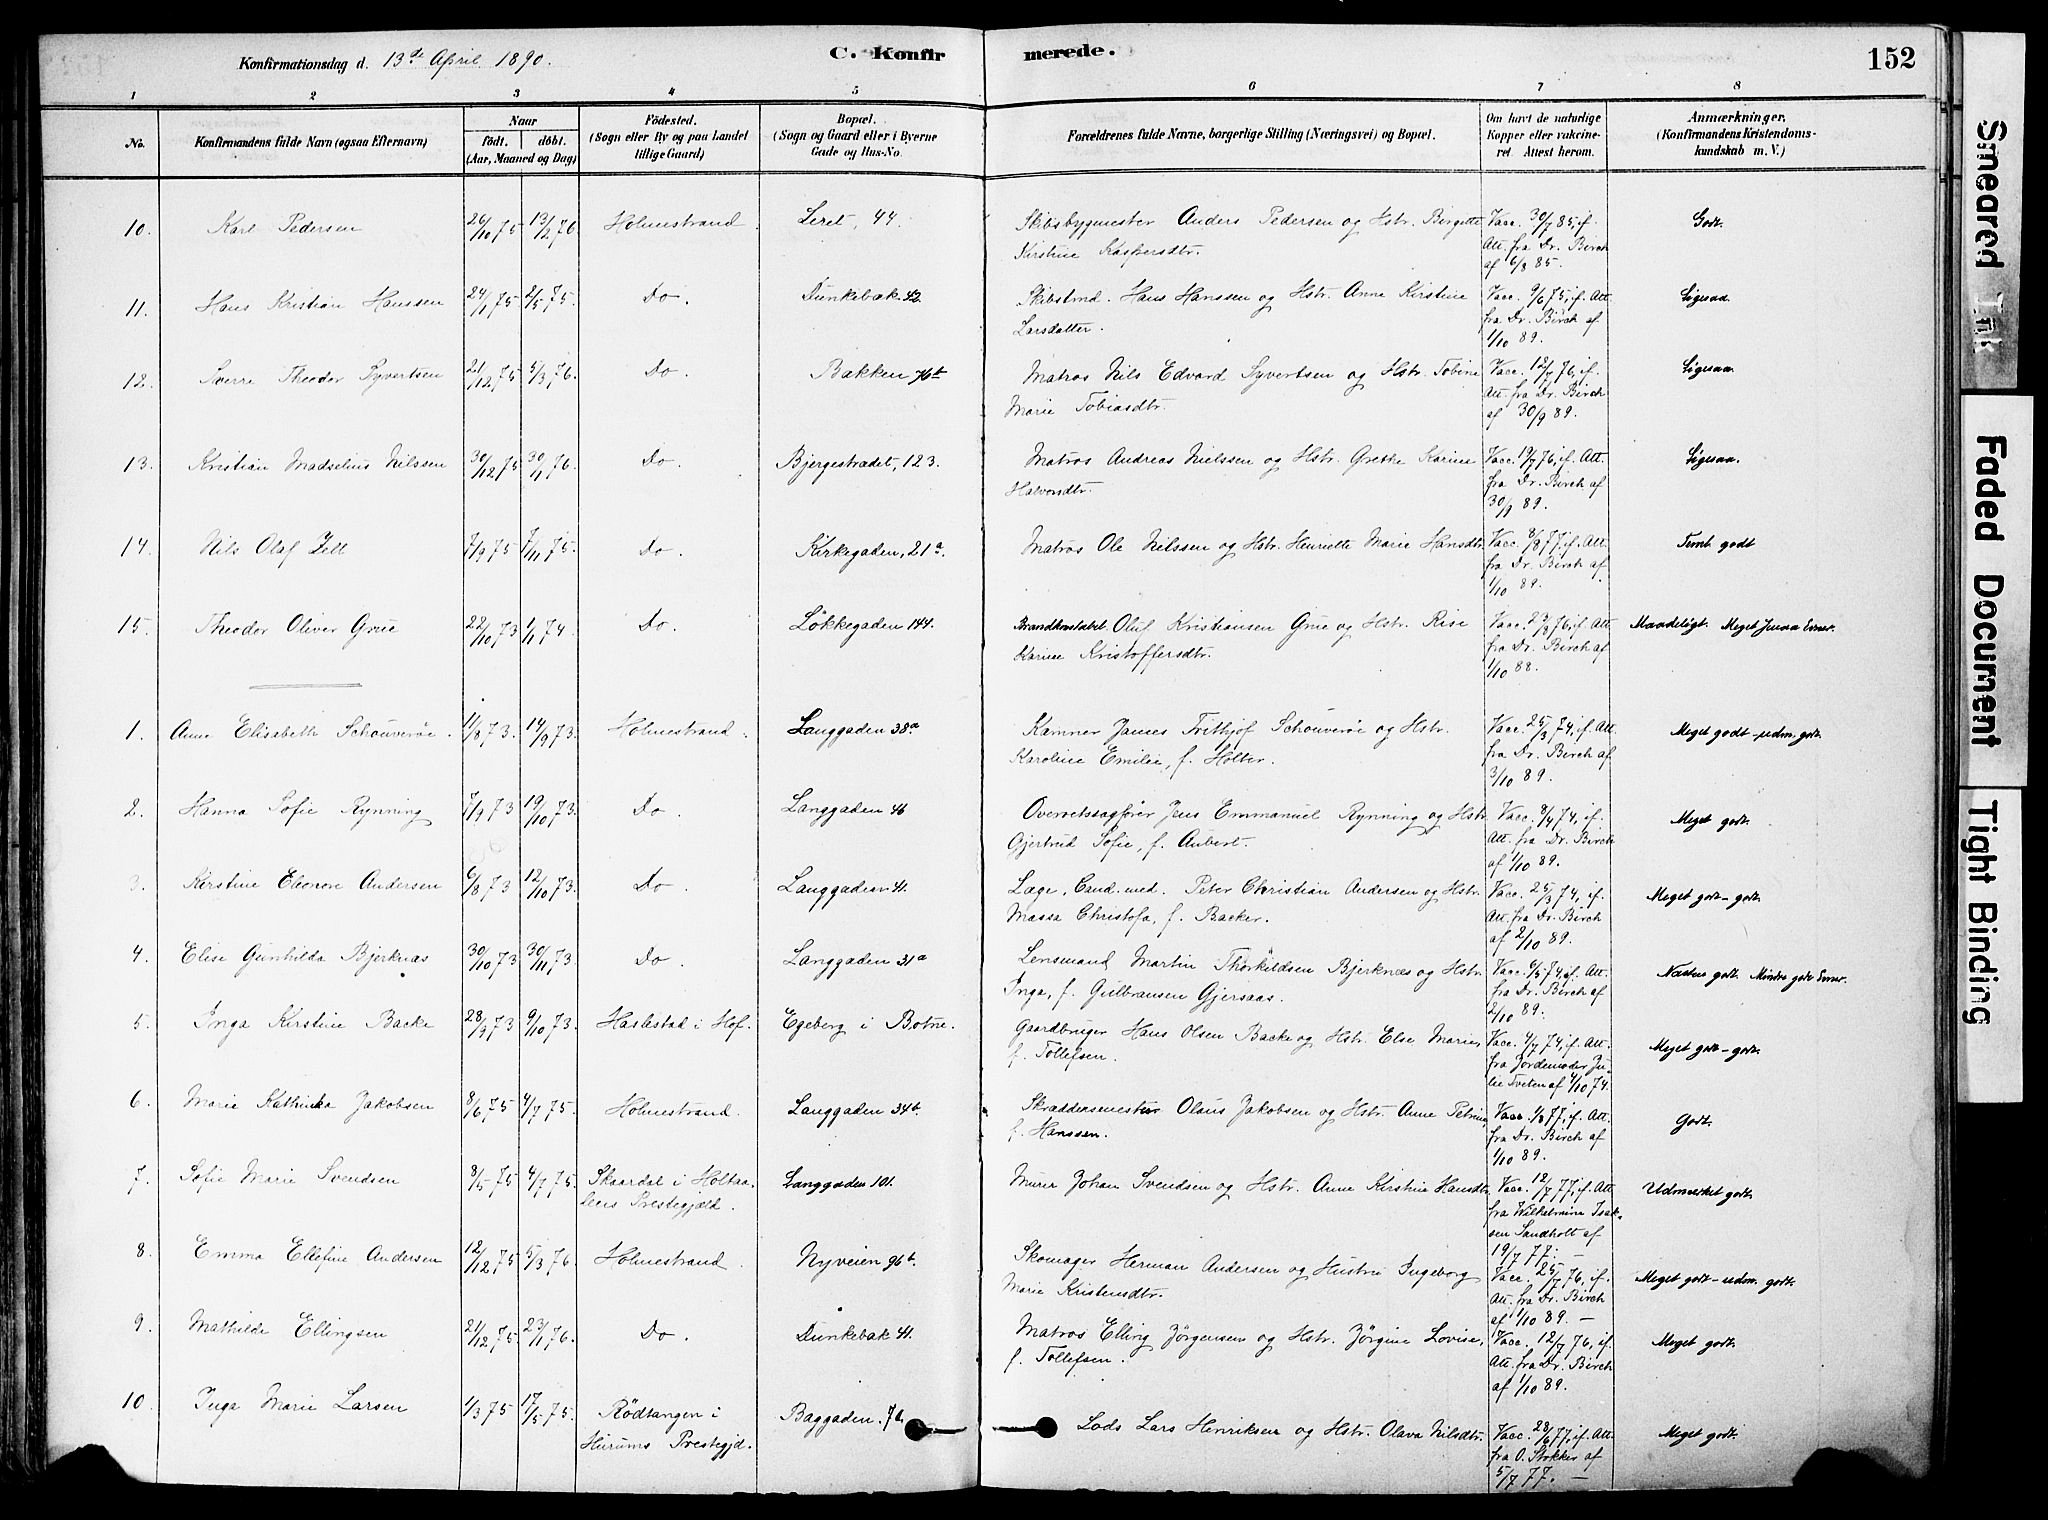 Konfirmationsdag d. 13de April 1890.
C. Konfir merede.
152
1 2 3 4 5 6 7 8
No.
Konfirmandens fulde Navn (ogsaa Efternavn)
Naar
födt. döbt.
(Aar, Maaned og Dag)
Födested.
(Sogn eller By og paa Landet
tillige Gaard)
Bopæl.
(Sogn og Gaard eller i Byerne
Gade og Hus-No.
Forældrenes fulde Navne, borgerlige Stilling (Næringsvei) og Bopæl.
Om havt de naturlige
Kopper eller vakcine-
ret. Attest herom.
Anmærkninger.
(Konfirmandens Kristendoms-
kundskab m. V.)
10. Karl Pedersen 26/10 75 13/2 76 Holmestrand. Leret, 44. Skibsbygmester Anders Pedersen og Hstr. Birgitte Vacc. 30/7 85, if. Godt.
Kirstine Kaspersdtr. Att. fra Dr. Birch
af 6/8 85.
11. Hans Kristian Hanssen 24/1 75 2/5 75. Do. Dunkebak. 42. Skibstmd. Hans Hanssen og Hstr. Anne Kirstine Vacc. 9/6 75, if. Att. Ligesaa.
Larsdatter. fra Dr. Birch af
1/10 89.
12. Sverre Theodor Syvertsen 21/12 75 5/3 76. Do. Bakken 76b Matros Nils Edvard Syvertsen og Hstr. Tobine Vacc. 12/7 76, if. Ligesaa.
Marie Tobiasdtr. Att. fra Dr. Birch
af 30/9 89.
13. Kristian Madselius Nilssen 30/12 75 30/1 76. Do. Bjergestrædet, 123. Matros Andreas Nielssen og Hstr. Grethe Karine Vacc. 19/7 76, if. Att. Ligesaa.
Halvorsdtr. fra Dr. Birch af
30/9 89.
14. Nils Olaf Zell 7/9 75 7/11 75. Do. Kirkegaden, 21a. Matros Ole Nilssen og Hstr. Henriette Marie Hansdtr. Vacc. 8/8 77, if. Att. Teml. godt
fra Dr. Birch af
1/10 89.
15. Theodor Oliver Grue 22/10 73 1/1 74. Do. Lökkegaden 144. Brandkonstabel Oluf Kristiansen Grue og Hstr. Rise Vacc. 23/3 76, if. Att Maadeligt. Meget Evner.
Karine Kristoffersdtr. fra Dr. Birch af
1/10 88.
1. Anne Elisabeth Schouveröe. 11/8 73. 14/9 73. Holmestrand. Langgaden 38a Kæmner James Frithjof Schouveröe og Hstr. Vacc. 25/3 74, if. Att. Meget godt - udm. godt.
Karoline Emilie, f. Holter. fra Dr. Birch af
3/10 89.
2. Hanna Sofie Rynning 7/9 73 19/10 73. Do. Langgaden 46 Overretssagförer Jens Emmanuel Rynning og Hstr. Vacc. 8/4 74, if. Meget godt.
Gjertrud Sofie, f. Aubert. Att. fra Dr. Birch
af 1/10 89.
3. Kirstine Eleonore Andersen 6/8 73 12/10 73. Do. Langgaden 41. Læge, Cand. med. Peter Christian Andersen og Hstr. Vacc. 25/3 74, if. Meget godt - godt.
Massa Christofa, f. Backer. Att. fra Dr. Birch
af 2/10 89.
4. Elise Gunhilda Bjerknæs 30/10 73 30/11 73. Do. Langgaden 31a Lensmand Martin Thorkildsen Bjerknæs og Hstr. Vacc. 6/5 74, if. Att. Næsten godt. Mindre gode Evner.
Inga, f. Gulbransen Gjersaas. fra Dr. Birch af
2/10 89.
5. Inga Kirstine Backe 28/3 73 9/10 73. Haslestad i Hof. Egeberg i Botne. Gaardbruger Hans Olsen Backe og Hstr. Else Marie, Vacc. 4/7 74, if. Att. Meget godt - godt.
f. Tollefsen. fra Jordemoder Ju-
lie Tveten af 4/10 74.
6. Marie Kathinka Jakobsen 8/6 75 4/7 75. Holmestrand. Langgaden 34b. Skræddersmester Olaus Jakobsen og Hstr. Anne Petrine Vacc. 1/8 77, if. Att. Godt.
f. Hanssen. fra Dr. Birch af
1/10 89.
7. Sofie Marie Svendsen 8/5 75 4/7 75. Skaardal i Holtaa- Langgaden 101. Murer Johan Svendsen og Hstr. Anne Kirstine Hansdtr. Vacc. 12/7 77, if. Att Udmærket godt.
lens Prestegjæld. fra Wilhelmine Isak-
sen Sandholt af
19/7 77. —
8. Emma Ellefine Andersen 12/12 75 5/3 76. Holmestrand. Nyveien 96b. Skomager Herman Andersen og Hustru Ingeborg Vacc. 25/7 76, if. Meget godt - udm. godt.
Marie Kristensdtr. Att. fra Dr. Birch
af 1/10 89. —
9. Mathilde Ellingsen 21/12 75. 23/1 76. Do. Dunkebak 41. Matros Elling Jörgensen og Hstr. Jörgine Lovise, Vacc. 12/7 76, if. Meget godt.
f. Tollefsen. Att. fra Dr. Birch
af 1/10 89.
10. Inga Marie Larsen 1/3 75 17/5 75. Rödtangen i Baggaden. 76. Lods Lars Henriksen og Hstr. Olava Nilsdtr. Vacc. 28/6 77, if. Att. Meget godt.
Hurums Prestegjd. fra O. Stokker af
5/7 77. —
Smeared Ink
Faded Document
Tight Binding